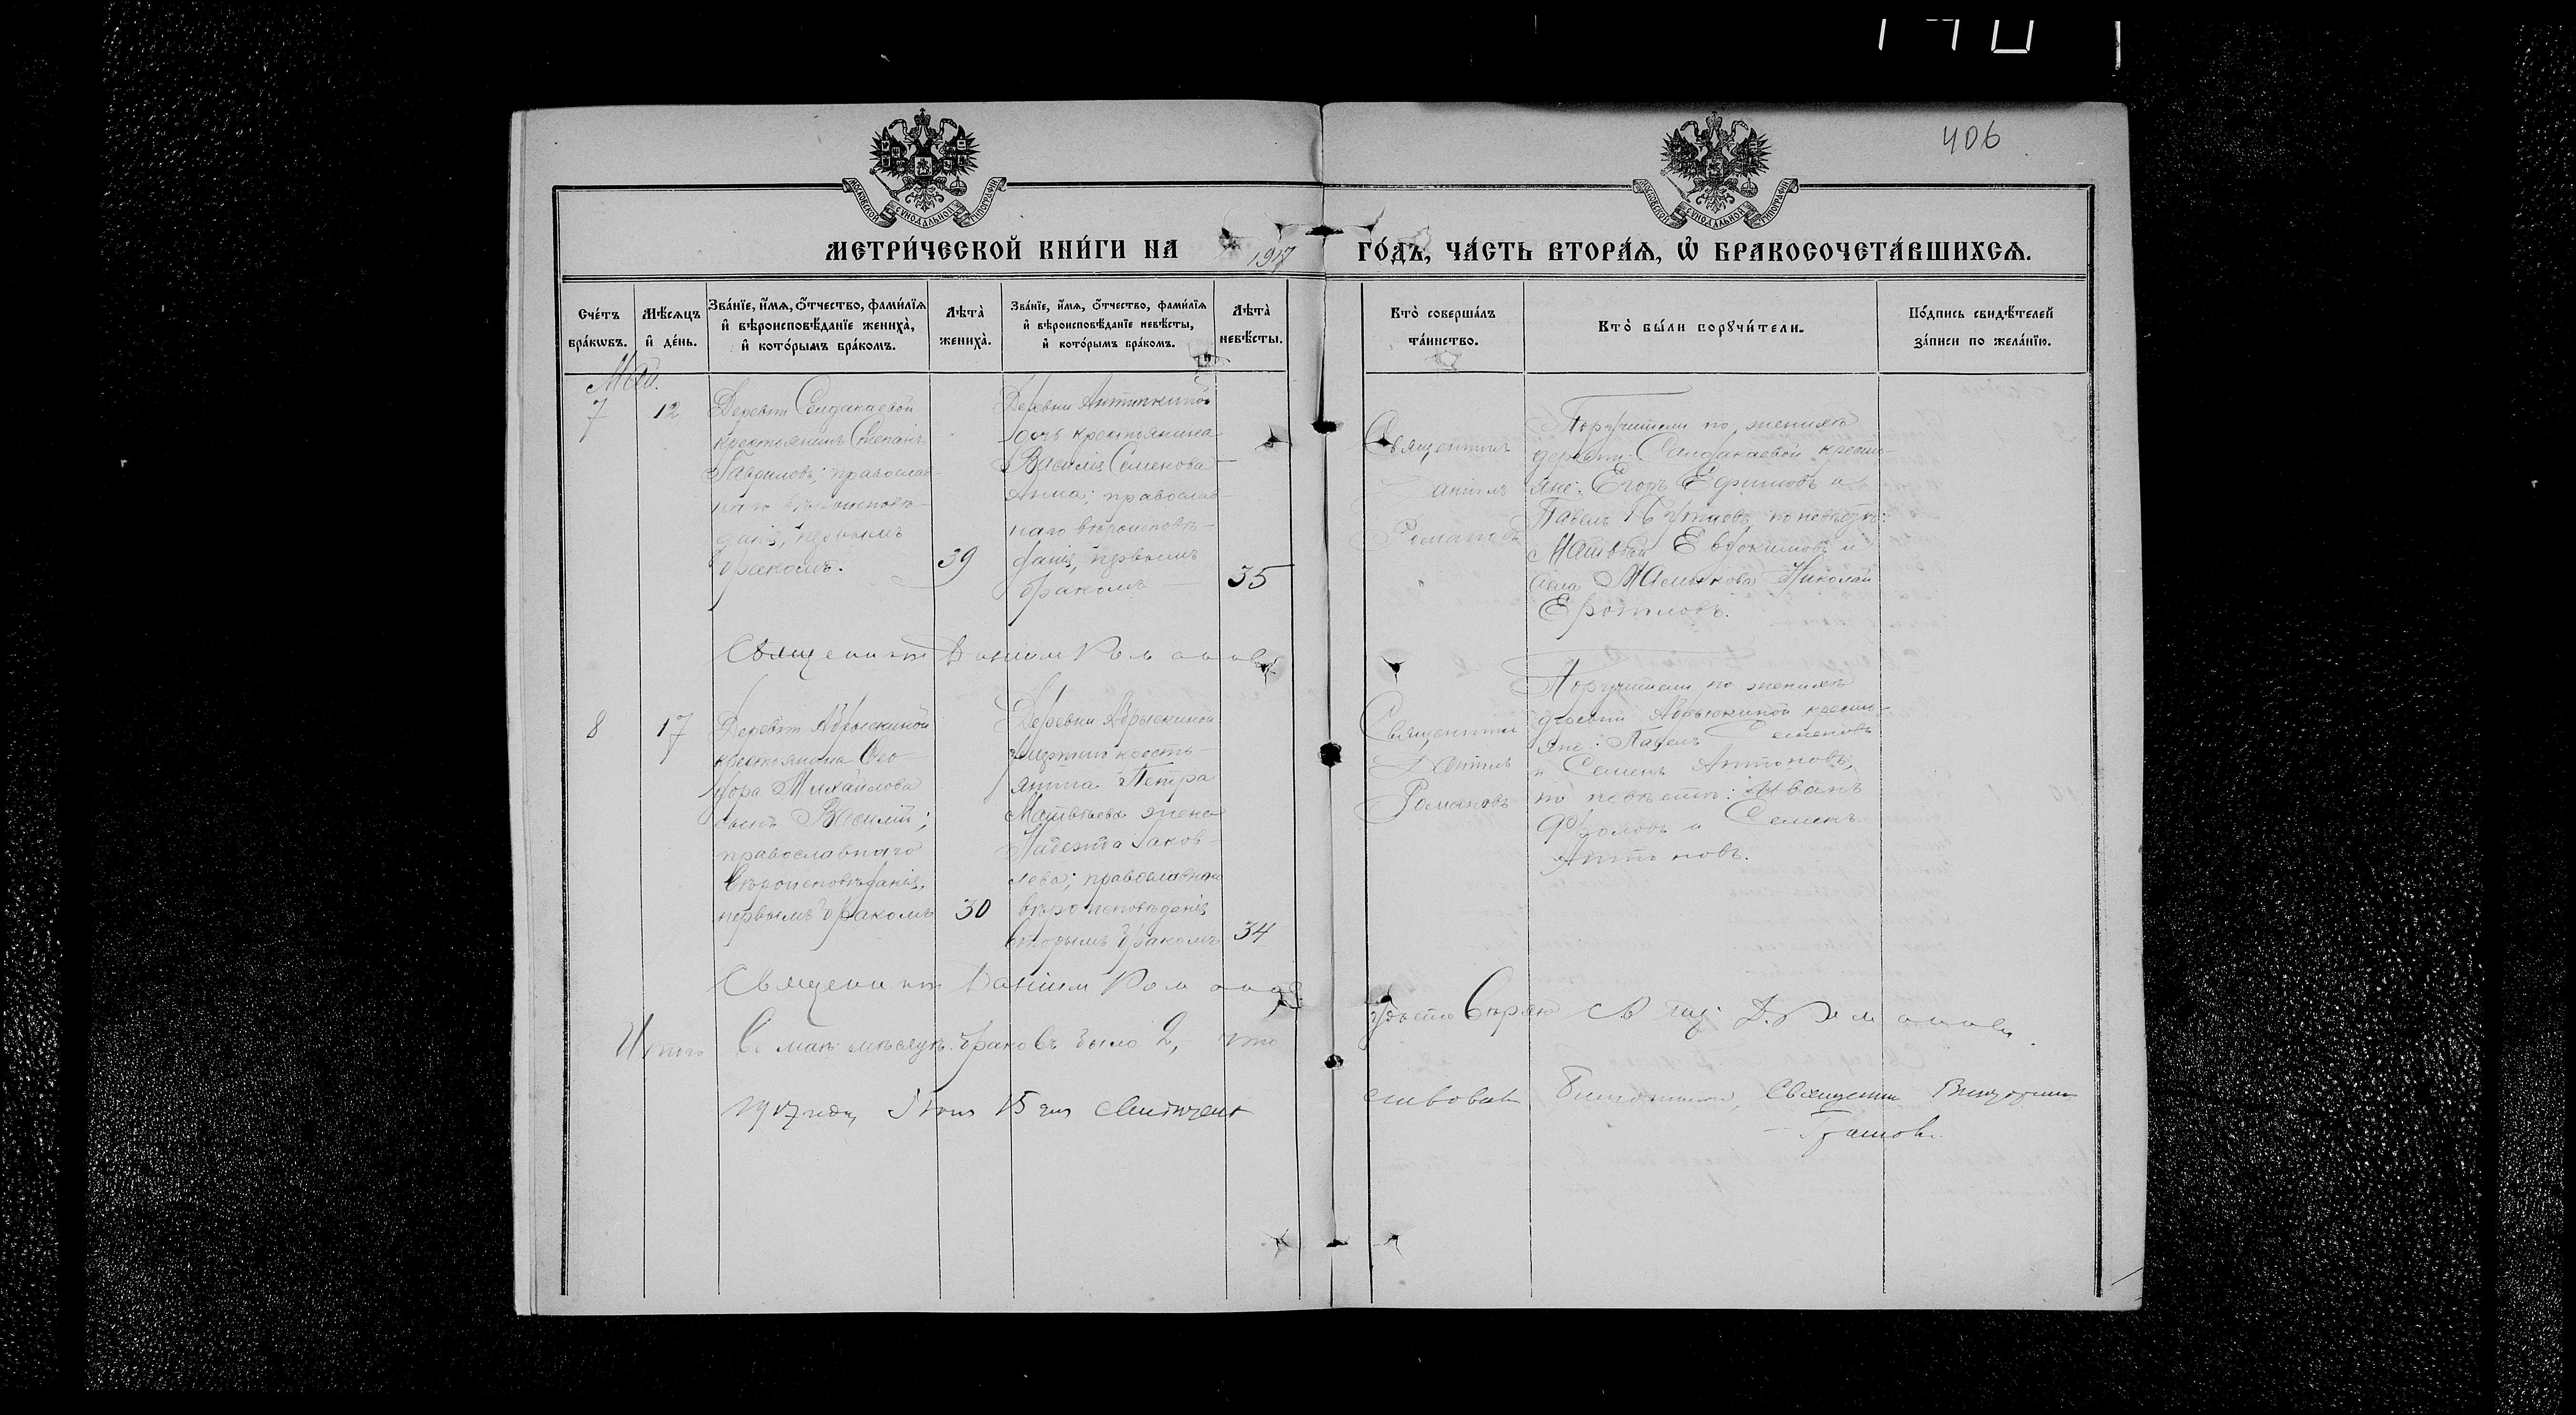 406
МОСКОВСКОЙ СѴНОДАЛЬНОЙ ТИПОГРАФІИ
МОСКОВСКОЙ СѴНОДАЛЬНОЙ ТИПОГРАФІИ
МЕТРИ́ЧЕСКОЙ КНИ́ГИ НА 1917 ГО́ДЪ, ЧА́СТЬ ВТОРА́Ѧ, Ѽ БРАКОСОЧЕТА́ВШИХСѦ.
Сче́тъ бра́кѡвъ.
Мѣ́сѧцъ и҆ де́нь.
Зва́нїе, и҆́мѧ, ѻ҆́тчество, фами́лїѧ
и҆ вѣроисповѣ́данїе жениха̀,
и҆ кото́рымъ бра́комъ.
Лѣта̀ жениха̀.
Зва́нїе, и҆́мѧ, ѻ҆́тчество, фами́лїѧ
и҆ вѣроисповѣ́данїе невѣ́сты,
и҆ кото́рымъ бра́комъ.
Лѣта̀ невѣ́сты.
Кто̀ соверша́лъ
та́инство.
Кто̀ бы́ли порꙋчи́тели.
По́дпись свидѣ́телей
за́писи по жела́нїю.
Май.
7
12
Деревни
крестьянинъ Степанъ
Гавриловъ; православ-
наго вѣроисповѣ-
данія, первымъ
бракомъ.
39
Деревни Антипкиной
дочь крестьянина
Василія Семенова
Анна; православ-
наго вѣроисповѣ-
данія, первымъ
бракомъ
35
Священникъ
Даніилъ
Романовъ
Поручители по женихѣ
деревни кресть-
яне: Егоръ Ефимовъ и
Павелъ по невѣстѣ:
Матвѣй Евдокимовъ и
села Николай
Священникъ Даніилъ Романовъ
8
17
Деревни Абрыскиной
крестьянина Ѳео-
дора Михайлова
сынъ Василій;
православнаго
вѣроисповѣданія,
первымъ бракомъ
30
Деревни Абрыскиной
умершаго кресть-
янина Петра
Матвѣева жена
Надежда Іаков-
лева; православнаго
вѣроисповѣданія
вторымъ бракомъ
34
Священникъ
Даніилъ
Романовъ
Поручители по женихѣ
деревни Абрыскиной кресть-
яне: Павелъ Семеновъ
и Семенъ Антоновъ;
по невѣстѣ: Иванъ
и Семенъ
Антоновъ.
Священникъ Даніилъ Романовъ
Итого въ маѣ мѣсяцѣ браковъ было 2, что
удостовѣряю Свящ. Д. Романовъ.
1917 года, Іюня 15 дня свидѣтель-
ствовалъ Священникъ